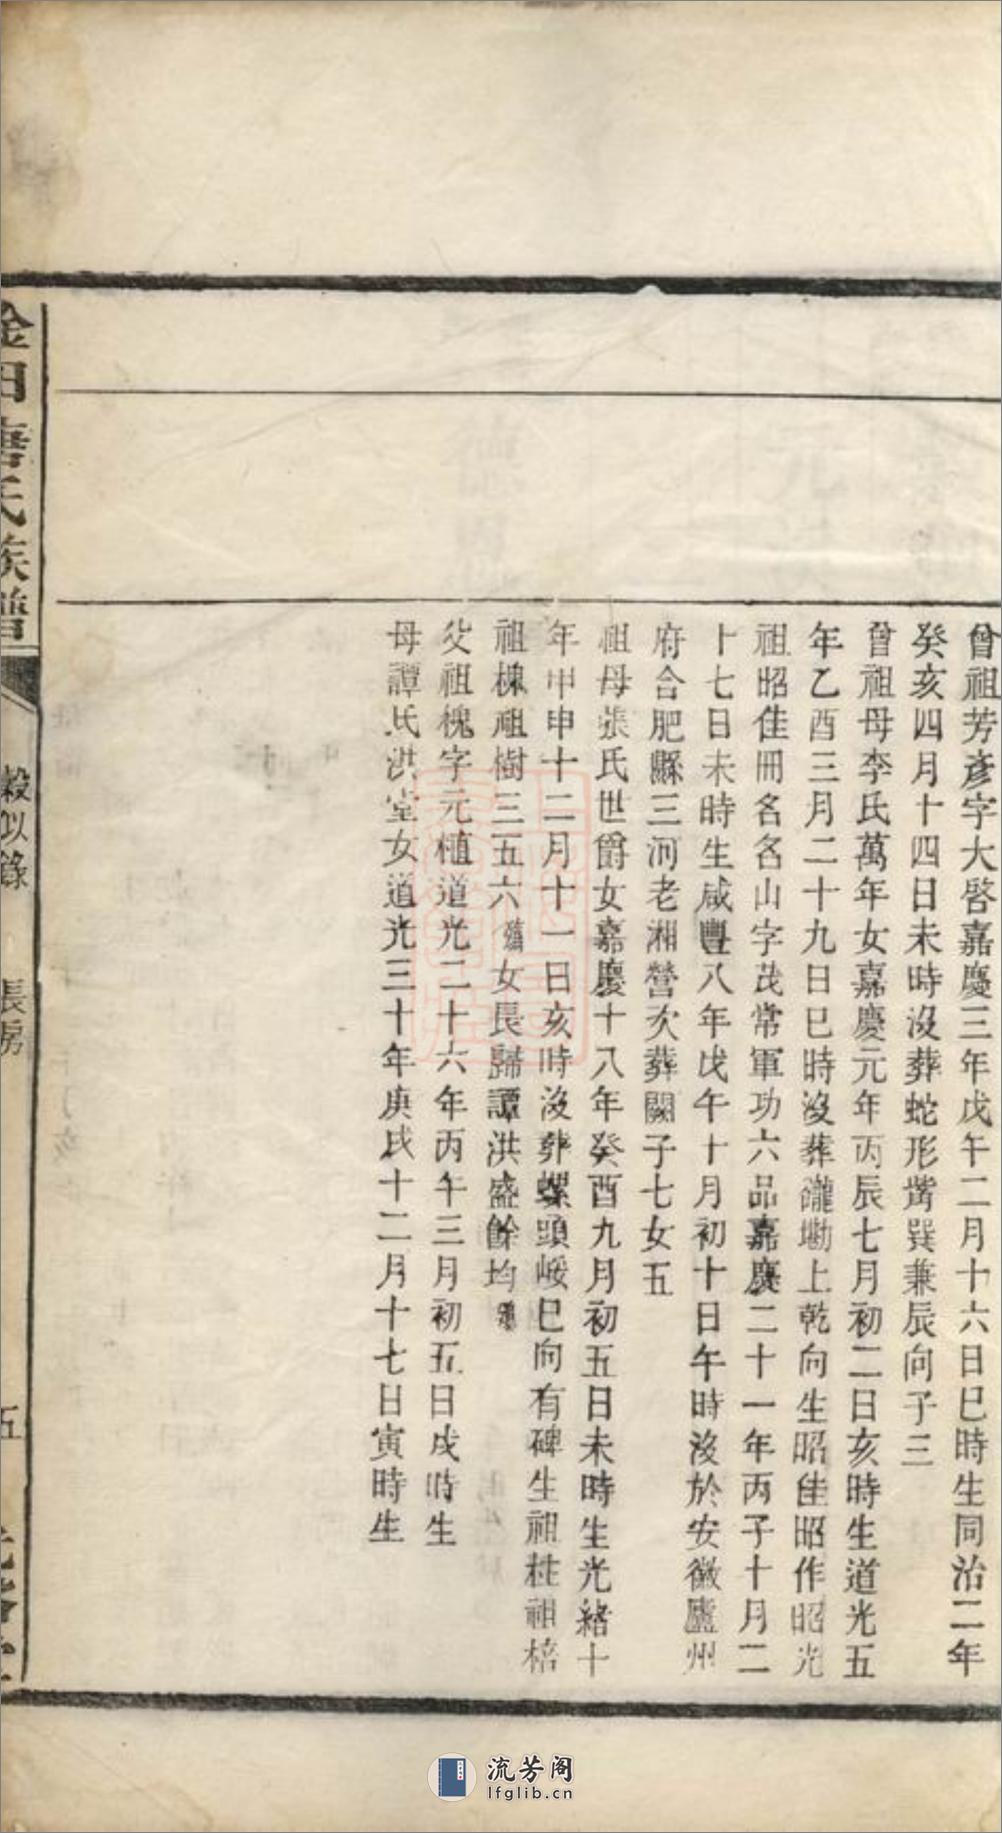 曾祖芳彥字大啓嘉慶三年戊午二月十六日巳時生同治二年
癸亥四月十四日未時沒葬蛇形觜巽兼辰向子三
曾祖母李氏萬年女嘉慶元年丙辰七月初二日亥時生道光五
年乙酉三月二十九日巳時沒葬瀧塘上乾向生昭佳昭作昭光
祖昭佳冊名名山字茂常軍功六品嘉慶二十一年丙子十月二
十七日未時生咸豐八年戊午十月初十日午時沒於安徽廬州
府合肥縣三河老湘營次葬闕子七女五
祖母張氏世爵女嘉慶十八年癸酉九月初五日未時生光緒十
年甲申十二月十一日亥時沒葬螺頭㟎巳向有碑生祖桂祖榙
祖棟祖樹三五六殤女長歸譚洪盛餘均殤
父祖槐字元植道光二十六年丙午三月初五日戌時生
母譚氏洪堂女道光三十年庚戌十二月十七日寅時生
金田唐氏族譜
穀似錄
長房
五
流芳阁
lfglib.cn